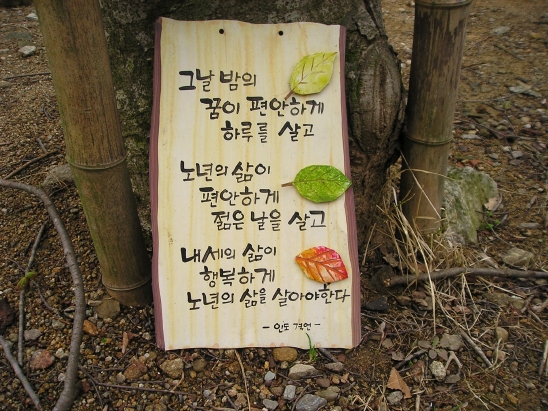 그날 밤의
꿈이 편안하게
하루를 살고
노년의 삶이
편안하게
젊은 날을 살고
내세의 삶이
행복하게
노년의 삶을 살아야한다
- 인도 격언 -